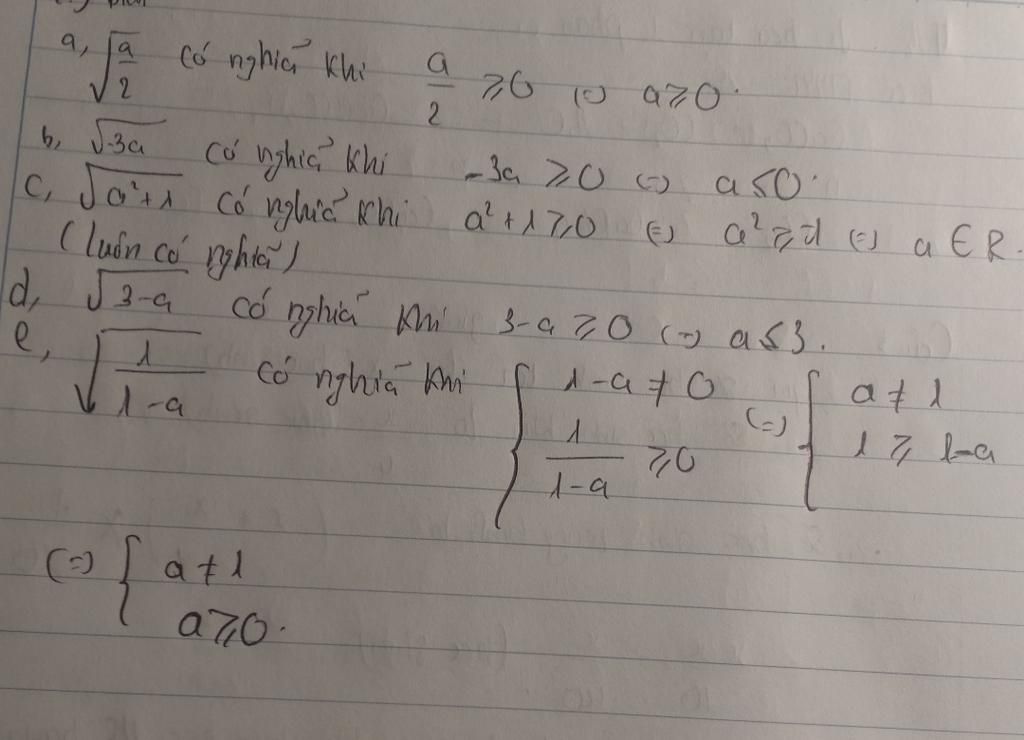 a, √(a/2) có nghiã khi a/2 ≥0 (=) a≥0.
b, √(-3a) có nghiã khi -3a ≥0 (=) a≤0.
c, √(a²+1) có nghiã khi a²+1≥0 (=) a²≥-1 (=) a∈R.
(luôn có nghiã)
d, √(3-a) có nghiã khi 3-a≥0 (=) a≤3.
e, √(1/(1-a)) có nghiã khi { 1-a≠0 ; 1/(1-a) ≥0 (=) { a≠1 ; 1 ≥ 1-a
(=) { a≠1
a≥0.